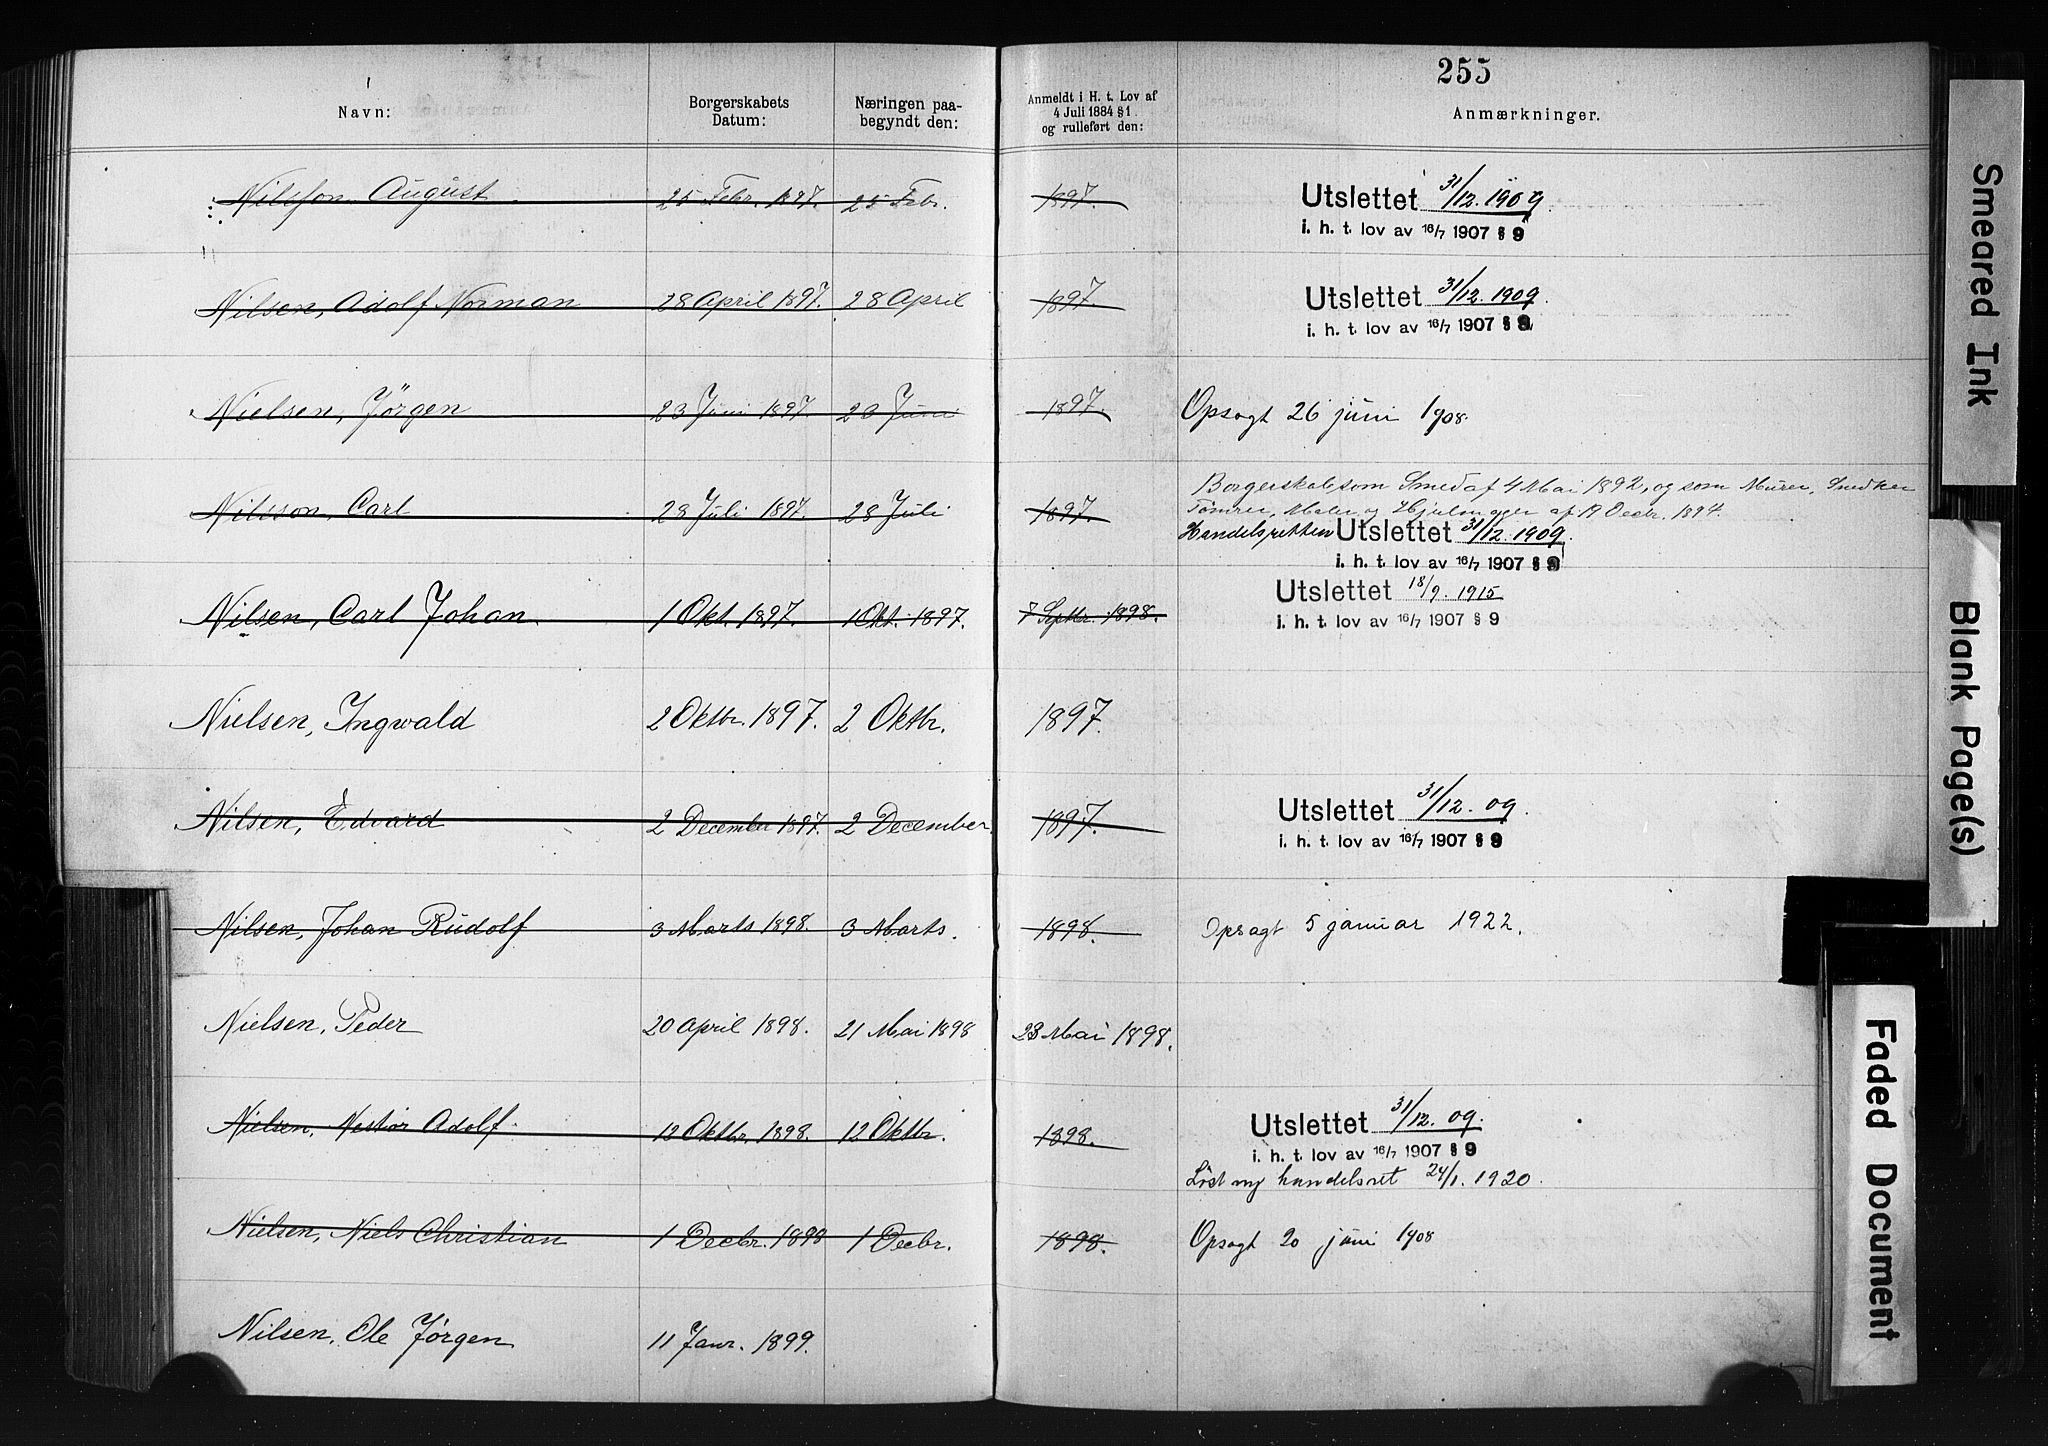 255
Navn: Borgerskabets Datum: Næringen paa-begyndt den: Anmeldt i H. t. Lov af 4 Juli 1884 § 1 og rulleført den: Anmærkninger.
Nilsson August 25 Febr. 1897. 25 Feb. 1897. Utslettet 31/12. 1909.
i. h. t. lov av 16/7 1907 § 9
Nilsen, Adolf Norman 28 April 1897. 28 April 1897. Utslettet 31/12. 1909.
i. h. t. lov av 16/7 1907 § 9
Nielsen, Jørgen 23 Juni 1897. 23 Juni 1897. Opsagt 26 juni 1908.
Borgerskab som Smed af 4 Mai 1892, og som Murer, Snedker
Nilsson, Carl 28 Juli 1897. 28 Juli 1897. Tømrer, Maler og af 19 Decbr. 1894.
Handelsretten Utslettet 31/12. 1909.
i. h. t. lov av 16/7 1907 § 9
Utslettet 18/9. 1915
Nilsen, Carl Johan. 1 Okt. 1897. 1 Okt. 1897. 7 Septbr. 1898. i. h. t. lov av 16/7 1907 § 9
Nielsen, Ingwald 2 Oktbr. 1897. 2 Oktbr. 1897.
Nilsen, Edvard 2 December 1897. 2 December. 1897. Utslettet 31/12. 09.
i. h. t. lov av 16/7 1907 § 9
Nilsen, Johan Rudolf 3 Marts 1898. 3 Marts. 1898. Opsagt 5 januar 1922.
Nielsen, Peder 20 April 1898. 21 Mai 1898 23 Mai 1898.
Nielsen, Nestor Adolf. 12 Oktbr. 1898. 12 Oktbr. 1898. Utslettet 31/12. 09.
i. h. t. lov av 16/7 1907 § 9
Löst ny handelsret 24/1. 1920.
Nielsen, Niels Christian 1 Decbr. 1898 1 Decbr. 1898. Opsagt 20 juni 1908
Nilsen, Ole Jørgen 11 Janr. 1899.
Smeared Ink
Blank Page(s)
Faded Document